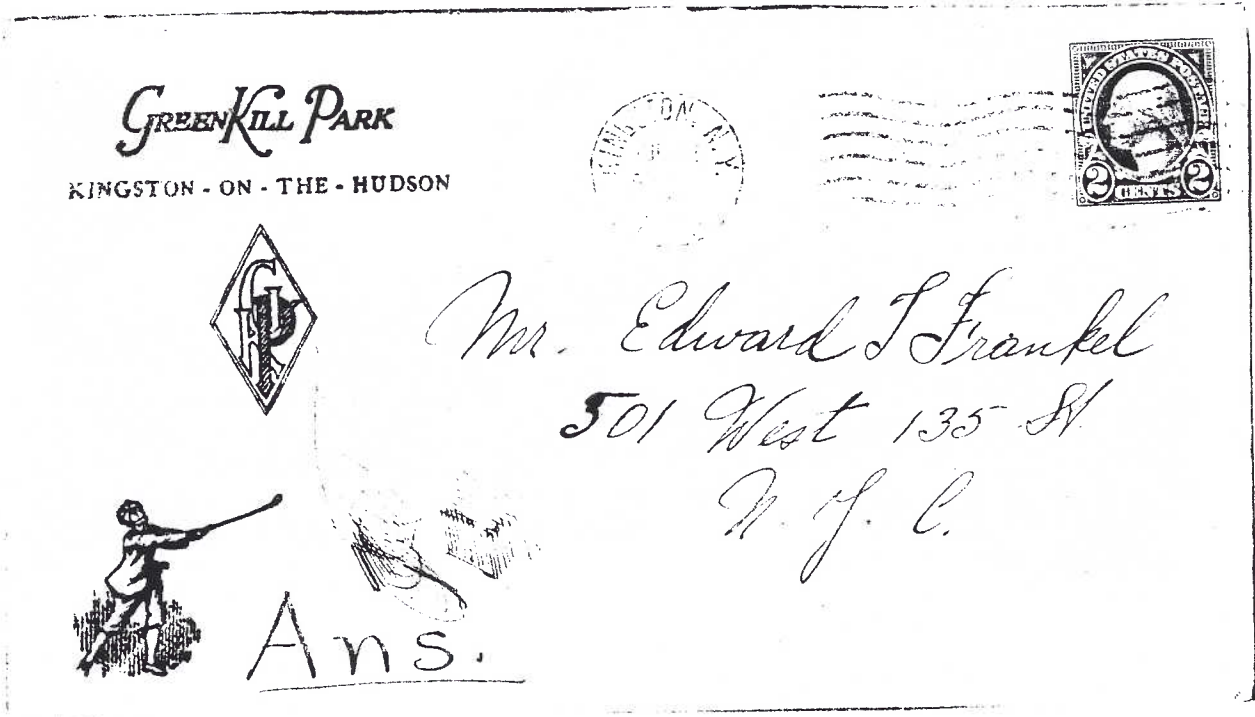 GREENKILL PARK
KINGSTON - ON - THE - HUDSON
GKP
KINGSTON, N.Y.
UNITED STATES POSTAGE
2 CENTS 2
Mr. Edward T Frankel
501 West 135 St
N. Y. C.
Ans.